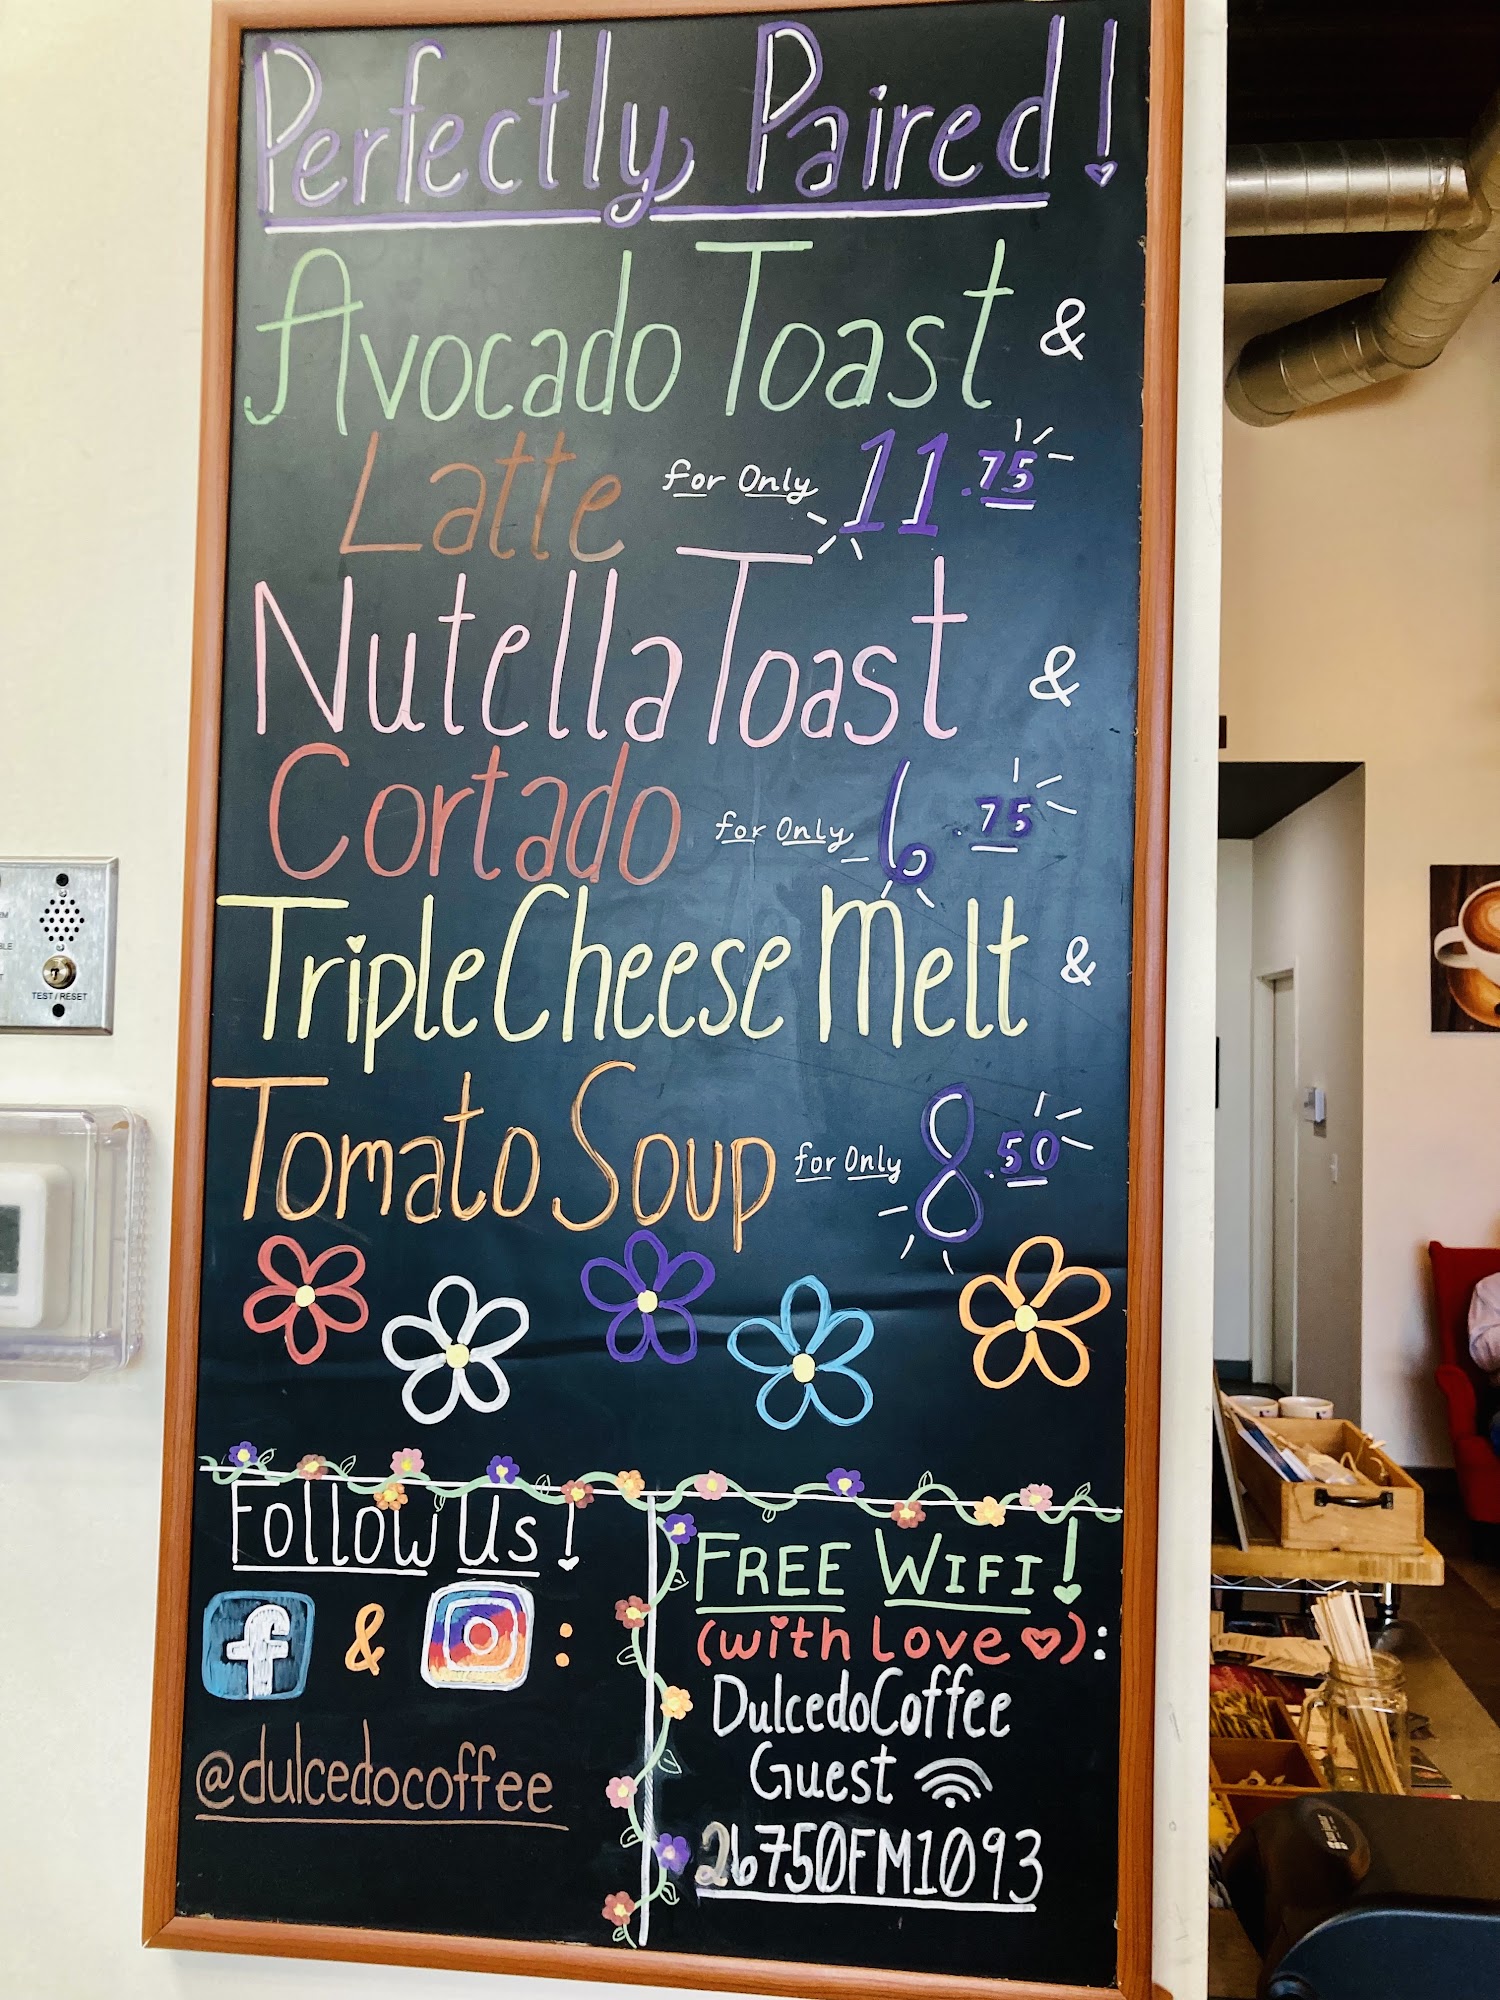 Perfectly Paired!
Avocado Toast &
Latte for Only 11.75
Nutella Toast &
Cortado for Only 6.75
Triple Cheese Melt &
Tomato Soup for Only 8.50
Follow Us!
f & :
@dulcedocoffee
FREE WIFI!
(with Love ♡):
DulcedoCoffee
Guest
26750FM1093
TEST/RESET